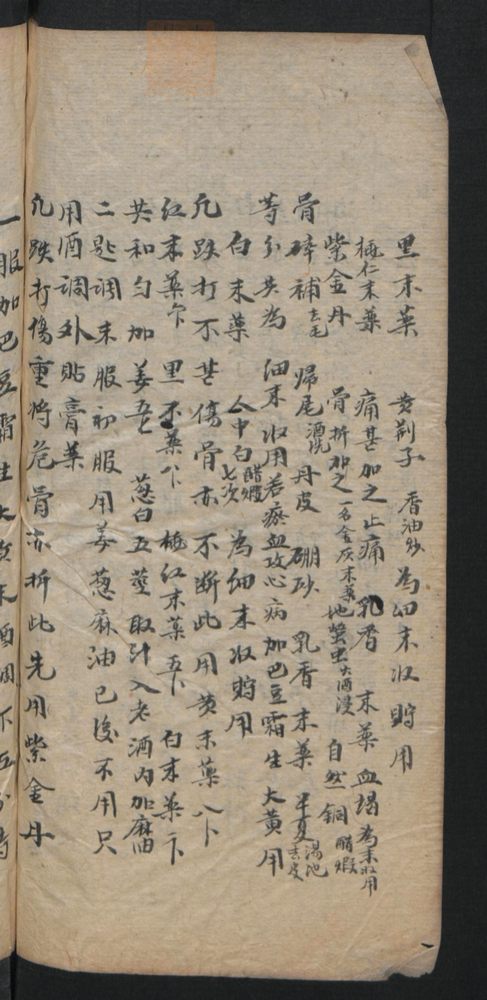 黑末薬 黄荆子 香油炒 為細末收貯用
桃仁末薬 痛甚加之止痛 乳香 末薬 血竭 為末收用
紫金丹 骨折加之 一名金灰末薬 地鱉虫 火酒浸 自然銅 醋煆
骨碎補 去毛 歸尾 酒洗 丹皮 硼砂 乳香 末薬 半夏 湯泡去皮
等分共為細末收用若瘀血攻心病加巴豆霜生大黄用
白末薬 人中白 醋煆七次 為細末收貯用
凢跌打不甚傷骨亦不断此用黄末薬八卜
红末薬 黑末薬八卜 桃红末薬五卜 白末薬二卜
共和匀加姜五 葱白五莖取汁入老酒内加麻油
二匙調末服初服用姜葱麻油已後不用只
用酒調外貼膏薬
凢跌打傷重将危骨亦折此先用紫金丹
一服加巴豆霜生大黄末酒調下五分